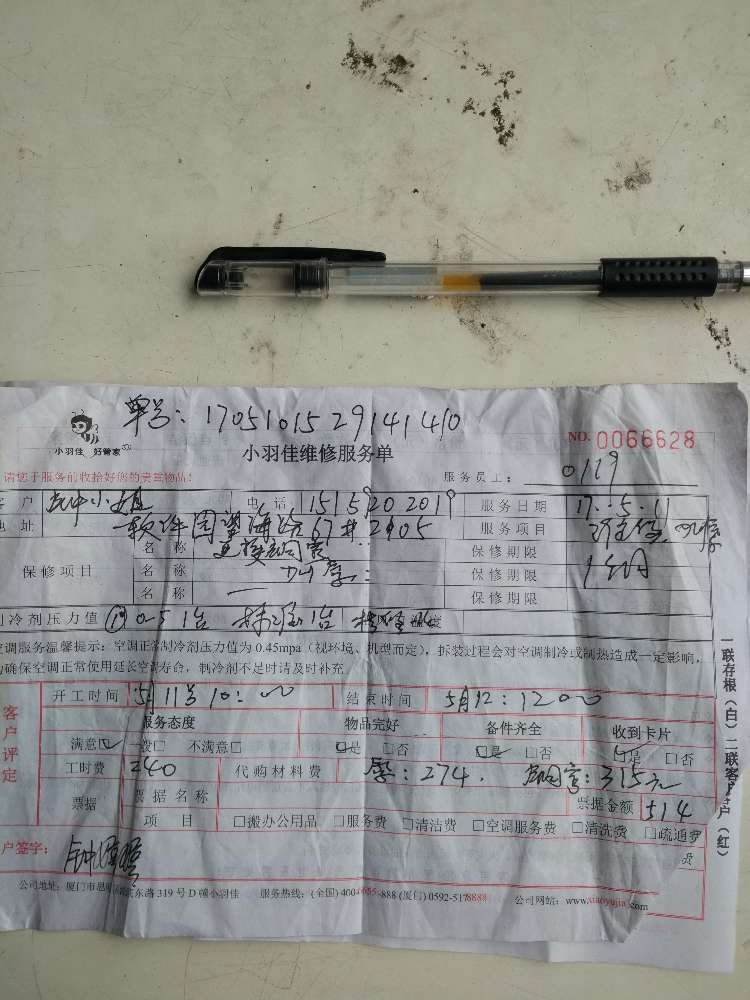 单号：1705101529141410
小羽佳 好管家
小羽佳维修服务单
NO. 0066628
请您于服务前收拾好您的贵重物品！
服务员工： 0119
客 户 钟小姐 电 话 15159202019 服务日期 17.5.11
地 址 软件园望海路67# 2905 服务项目
保修项目
名 称 保修期限 1个月
名 称 保修期限
名 称 保修期限
制冷剂压力值 0.5 1台 1台
空调服务温馨提示：空调正常制冷剂压力值为 0.45mpa（视环境、机型而定），拆装过程会对空调制冷或制热造成一定影响，
为确保空调正常使用延长空调寿命，制冷剂不足时请及时补充
客户评定
开工时间 5月11号10:00 结束时间 5月12:1200
服务态度 物品完好 备件齐全 收到卡片
满意☑ 一般□ 不满意□ ☑是 □否 ☑是 □否 ☑是 □否
工时费 240 代购材料费 ：274. ：315元
票据
票据名称 票据金额 514
项 目 □搬办公用品 □服务费 □清洁费 □空调服务费 □清洗费 □疏通费
户签字：
公司地址：厦门市思明 东路 319 号 D 幢小羽佳 服务热线：(全国) 400-6655-888 (厦门) 0592-5178888 公司网站：www.xiaoyujia.com
一联存根（白）二联客户（红）